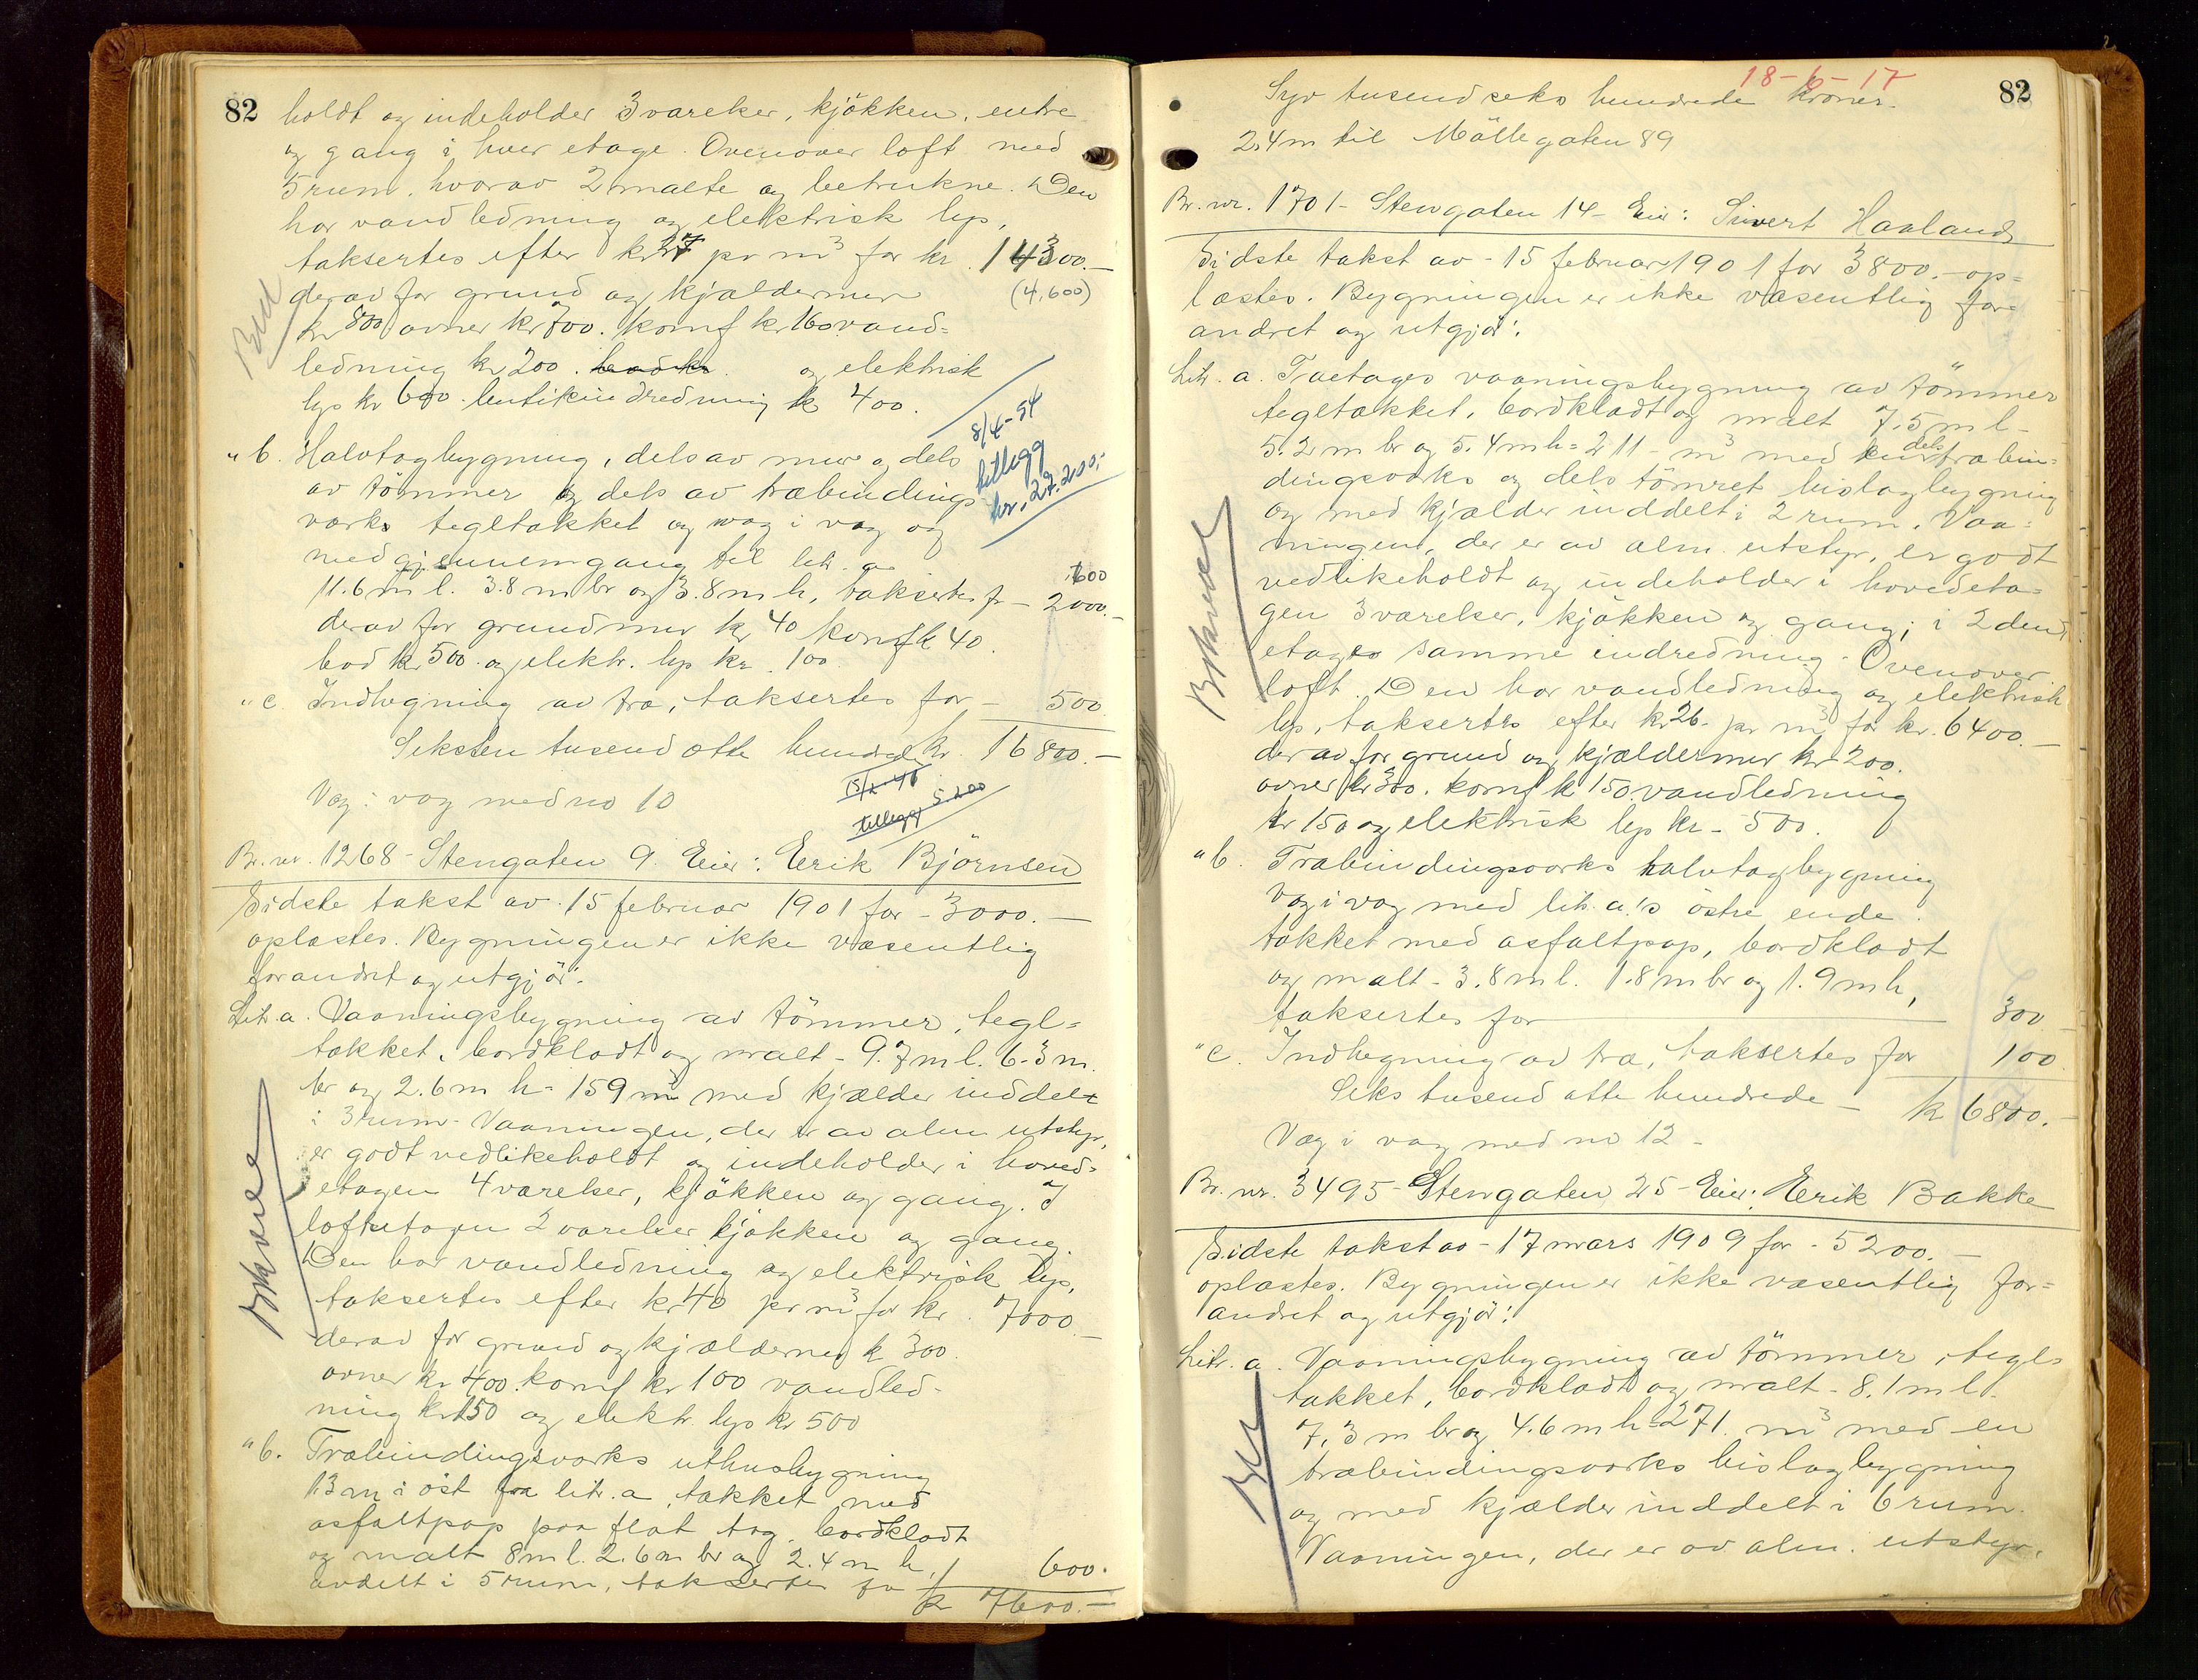 82
holdt og indeholder 3 værelser, kjökken, entre
og gang i hver etage. Ovenover loft med
5 rum, hvorav 2 malte og betrukne. Den
har vandledning og elektrisk lys,
taksertes efter kr 27 pr m³ for kr. 14300.—
derav for grund og kjældermur (4,600)
kr 800 ovner kr 700. komf kr 160 vand=
ledning kr 200. og elektrisk
lys kr 600. butikindredning kr 400.
8/4-54
tillegg
kr. 27.200,-
" b. Halvtagbygning, dels av mur og dels
av tömmer og dels av træbindings
værks tegltækket og væg i væg og
med gjennemgang til litr. a
11.6 m l. 3.8 m br og 3.8 m h, taksertes fr — 2000.—
1600
derav for grundmur kr 40 komf kr 40.
bod kr 500 og elektr. lys kr. 100
" c. Indhegning av træ, taksertes for — 500
Seksten tusend otte hundrede kr. 16800.—
Væg i væg med no 10
tillegg 5200
Br. nr. 1268 - Stengaten 9. Eier: Eerik Björnsen
Sidste takst av 15 februar 1901 for - 3000.—
oplæstes. Bygningen er ikke væsentlig
forandret og utgjör:
Litr. a. Vaaningsbygning av tömmer, tegl=
tækket, bordklædt og malt - 9.7 m l. 6.3 m.
br og 2.6 m h = 159 m³ med kjælder inddelt
i 3 rum - Vaaningen, der er av alm utstyr,
er godt vedlikeholdt og indeholder i hoved=
etagen 4 værelser, kjökken og gang. I
loftsetagen 2 værelser kjökken og gang.
Den har vandledning og elektrisk lys,
taksertes efter kr 40 pr m³ for kr. 7000.—
derav for grund og kjældermur kr 300.
ovner kr 400. komf kr 100 vandled-
ning kr 150 og elektr. lys kr 500
" b. Træbindingsværks uthusbygning
13 m i öst fra litr. a, tækket med
asfaltpap paa flat tag, bordklædt
og malt 8 m l. 2.6 m br og 2.4 m h,
avdelt i 5 rum, taksertes for 600.
kr 7600.—
18-6-17
82
Syv tusend seks hundrede kroner.
2.4 m til Möllegaten 89
Br. nr. 1701 - Stengaten 14 - Eier: Sivert Haaland
Sidste takst av - 15 februar 1901 for 3800.— op=
læstes. Bygningen er ikke væsentlig for=
andret og utgjör:
Litr. a. Toetages vaaningsbygning av tömmer
tegltækket, bordklædt og malt 7.5 m l -
5.2 m br og 5.4 m h = 211 - m³ med dels træbin=
dingsværks og dels tömret bislagbygning
og med kjælder inddelt i 2 rum. Vaa=
ningen, der er av alm. utstyr, er godt
vedlikeholdt og indeholder i hovedeta=
gen 3 værelser, kjökken og gang; i 2den
etages samme indredning. Ovenover
loft. Den har vandledning og elektrisk
lys, taksertes efter kr 26 - pr m³ for kr. 6400.—
derav for grund og kjældermur kr 200.
ovner kr 300. komf kr 150. vandledning
kr 150 og elektrisk lys kr - 500.
" b. Træbindingsværks halvtagbygning
væg i væg med litr. a.'s östre ende.
tækket med asfaltpap, bordklædt
og malt - 3.8 m l. 1.8 m br og 1.9 m h,
taksertes for — 300 —
" c. Indhegning av træ, taksertes for 100
Seks tusend otte hundrede — kr 6800.—
Væg i væg med no 12 -
Br. nr. 3495 - Stengaten 25 - Eier: Eerik Bakke
Sidste takst av - 17 mars 1909 for - 5200.—
oplæstes. Bygningen er ikke væsentlig for=
andret og utgjör:
Litr. a. Vaaningsbygning av tömmer, tegl=
tækket, bordklædt og malt - 8.1 m l.
7.3 m br og 4.6 m h = 271. m³ med en
træbindingsværks bislagbygning
og med kjælder inddelt i 6 rum.
Vaaningen, der er av alm. utstyr,